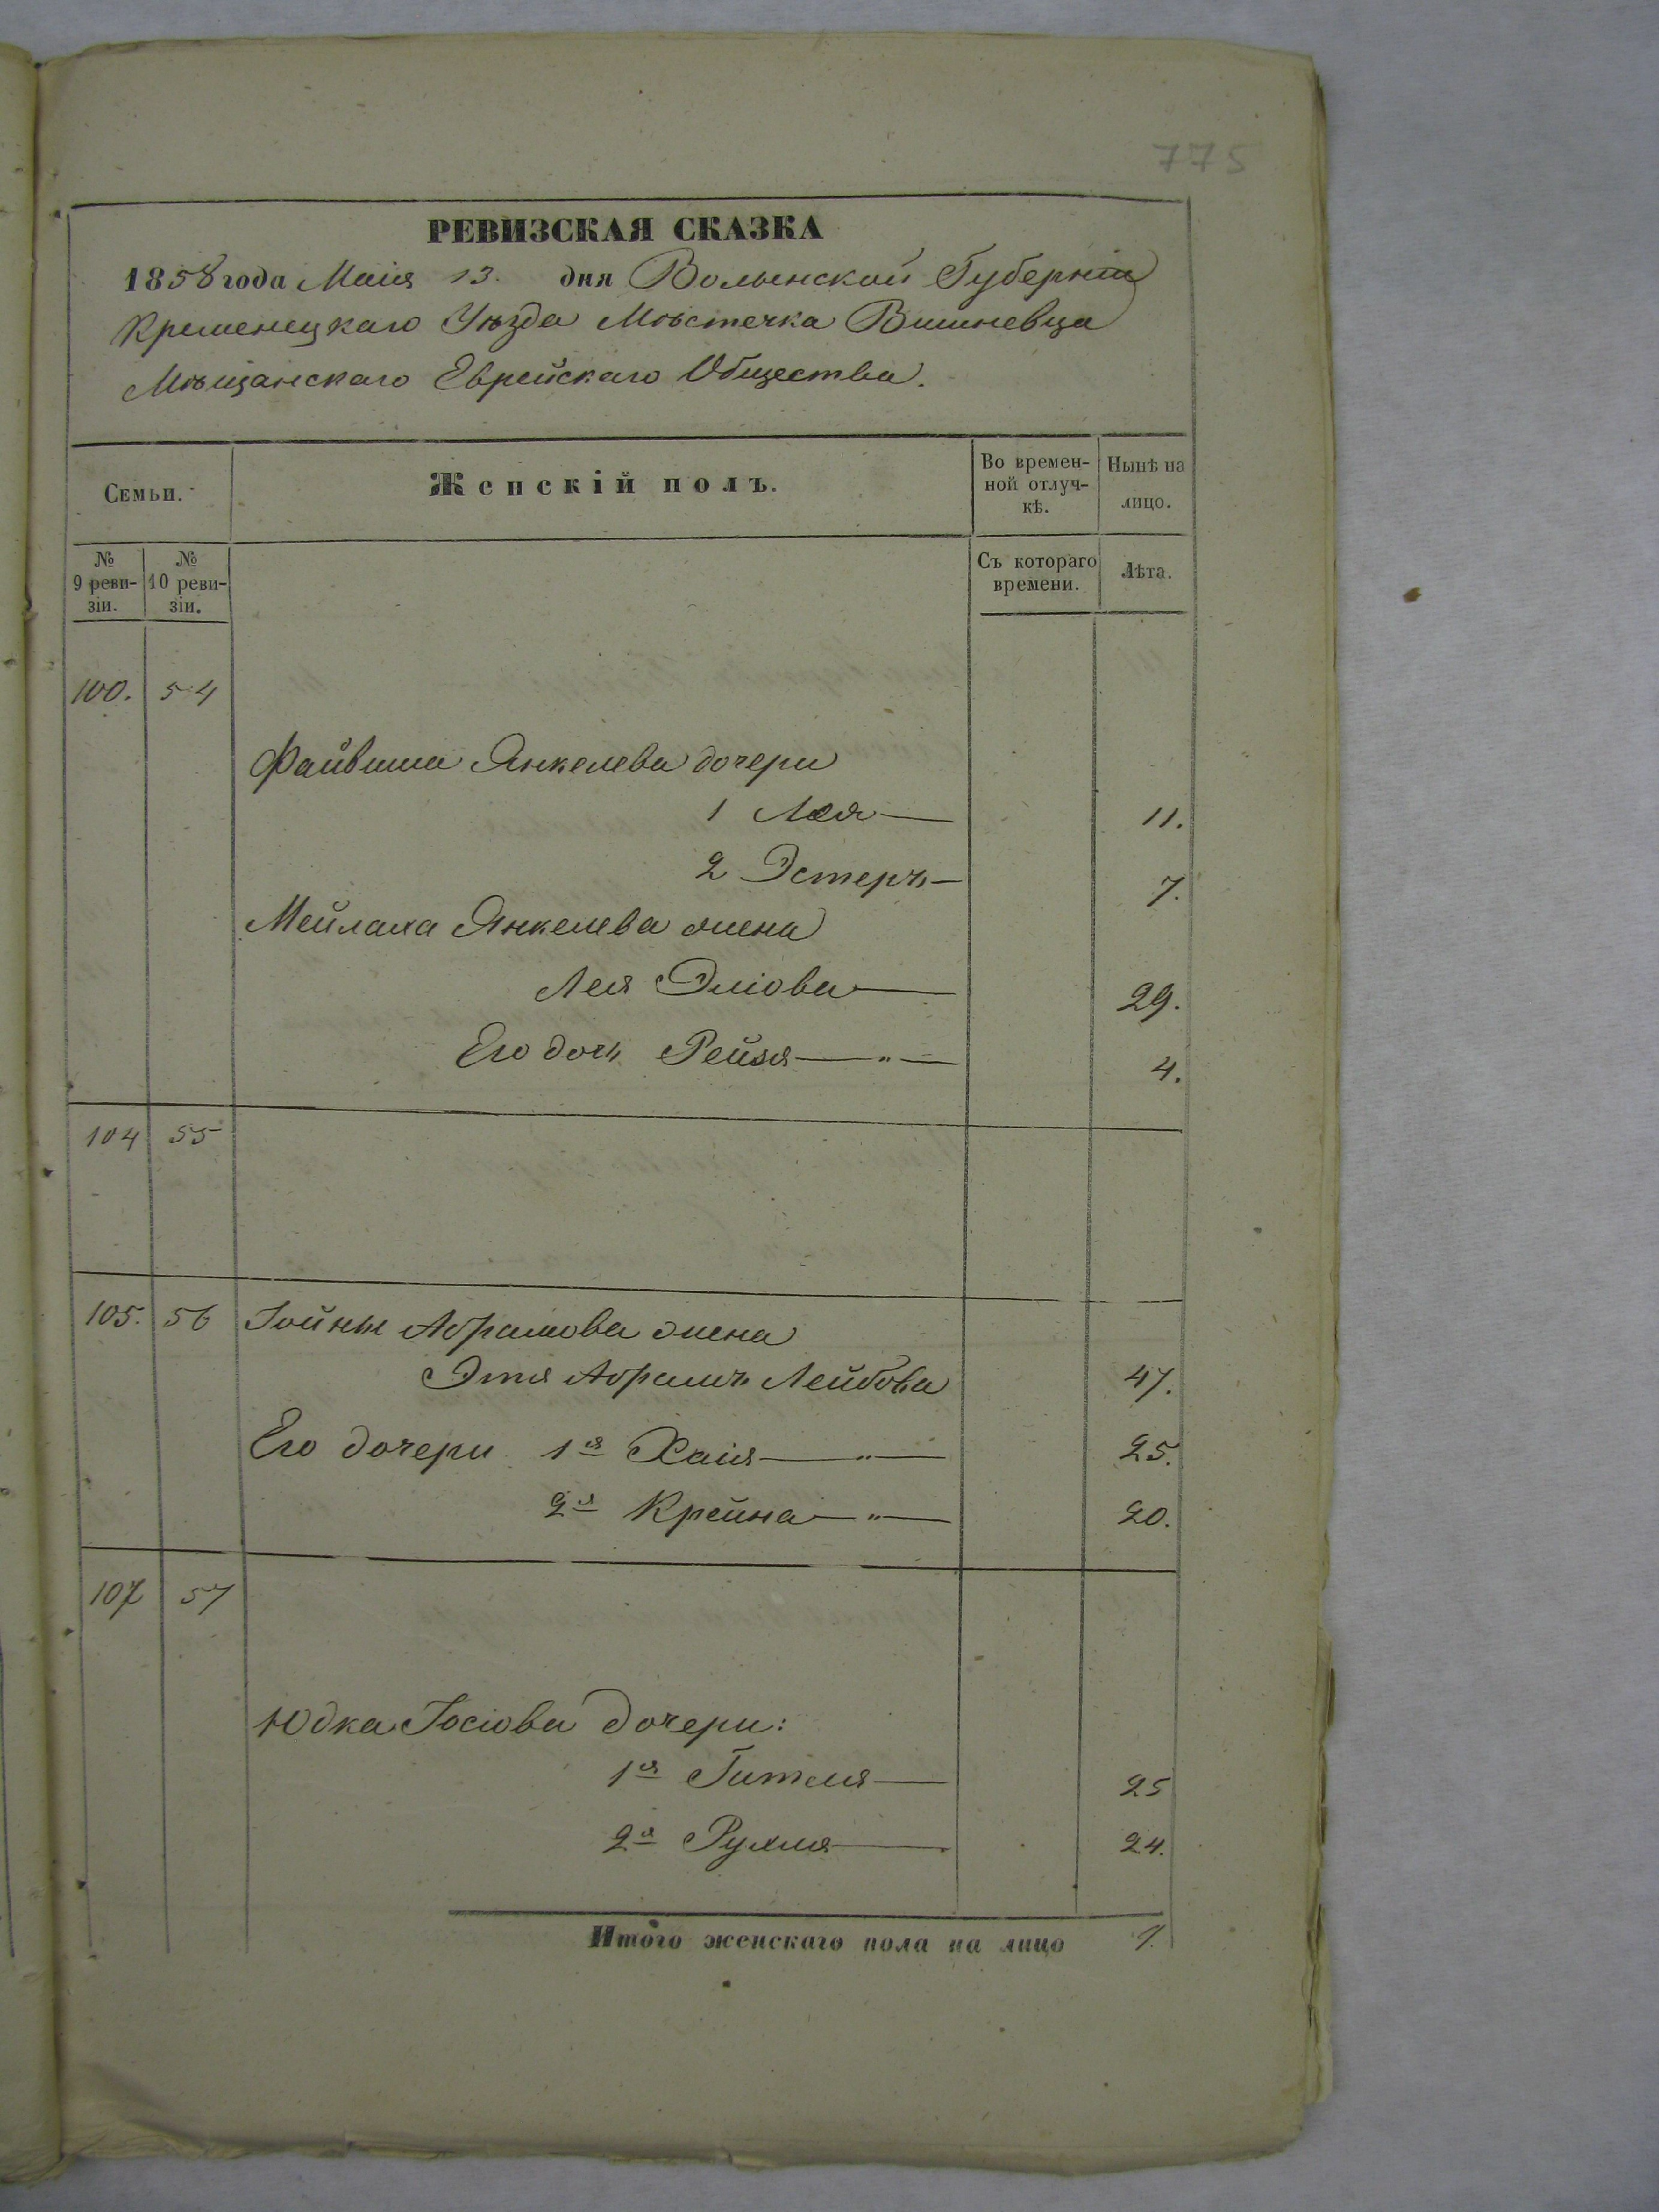 775
РЕВИЗСКАЯ СКАЗКА
1858 года Маія 13. дня Волынской Губерніи
Кременецкаго Уѣзда Мѣстечка Вишневца
Мѣщанскаго Еврейскаго Общества.
Семьи. Женскій полъ. Во времен-ной отлуч-кѣ. Нынѣ на лицо.
№ 9 реви-зіи. № 10 реви-зіи. Съ котораго времени. Лѣта.
100. 54
Файвиша Янкелева дочери
1 Лея 11.
2 Эстеръ 7.
Мейлаха Янкелева жена
Лея Эліова 29.
Его дочь Рейзя — " — 4.
104 55
105. 56 Іойны Абрамова жена
Этя Абрамъ Лейбова 47.
Его дочери 1я Хаія — " — 25.
2я Крейна — " — 20.
107 57
Юдка Іосіова дочери:
1я Гителя 25
2я Рухля 24.
Итого женскаго пола на лицо 9.